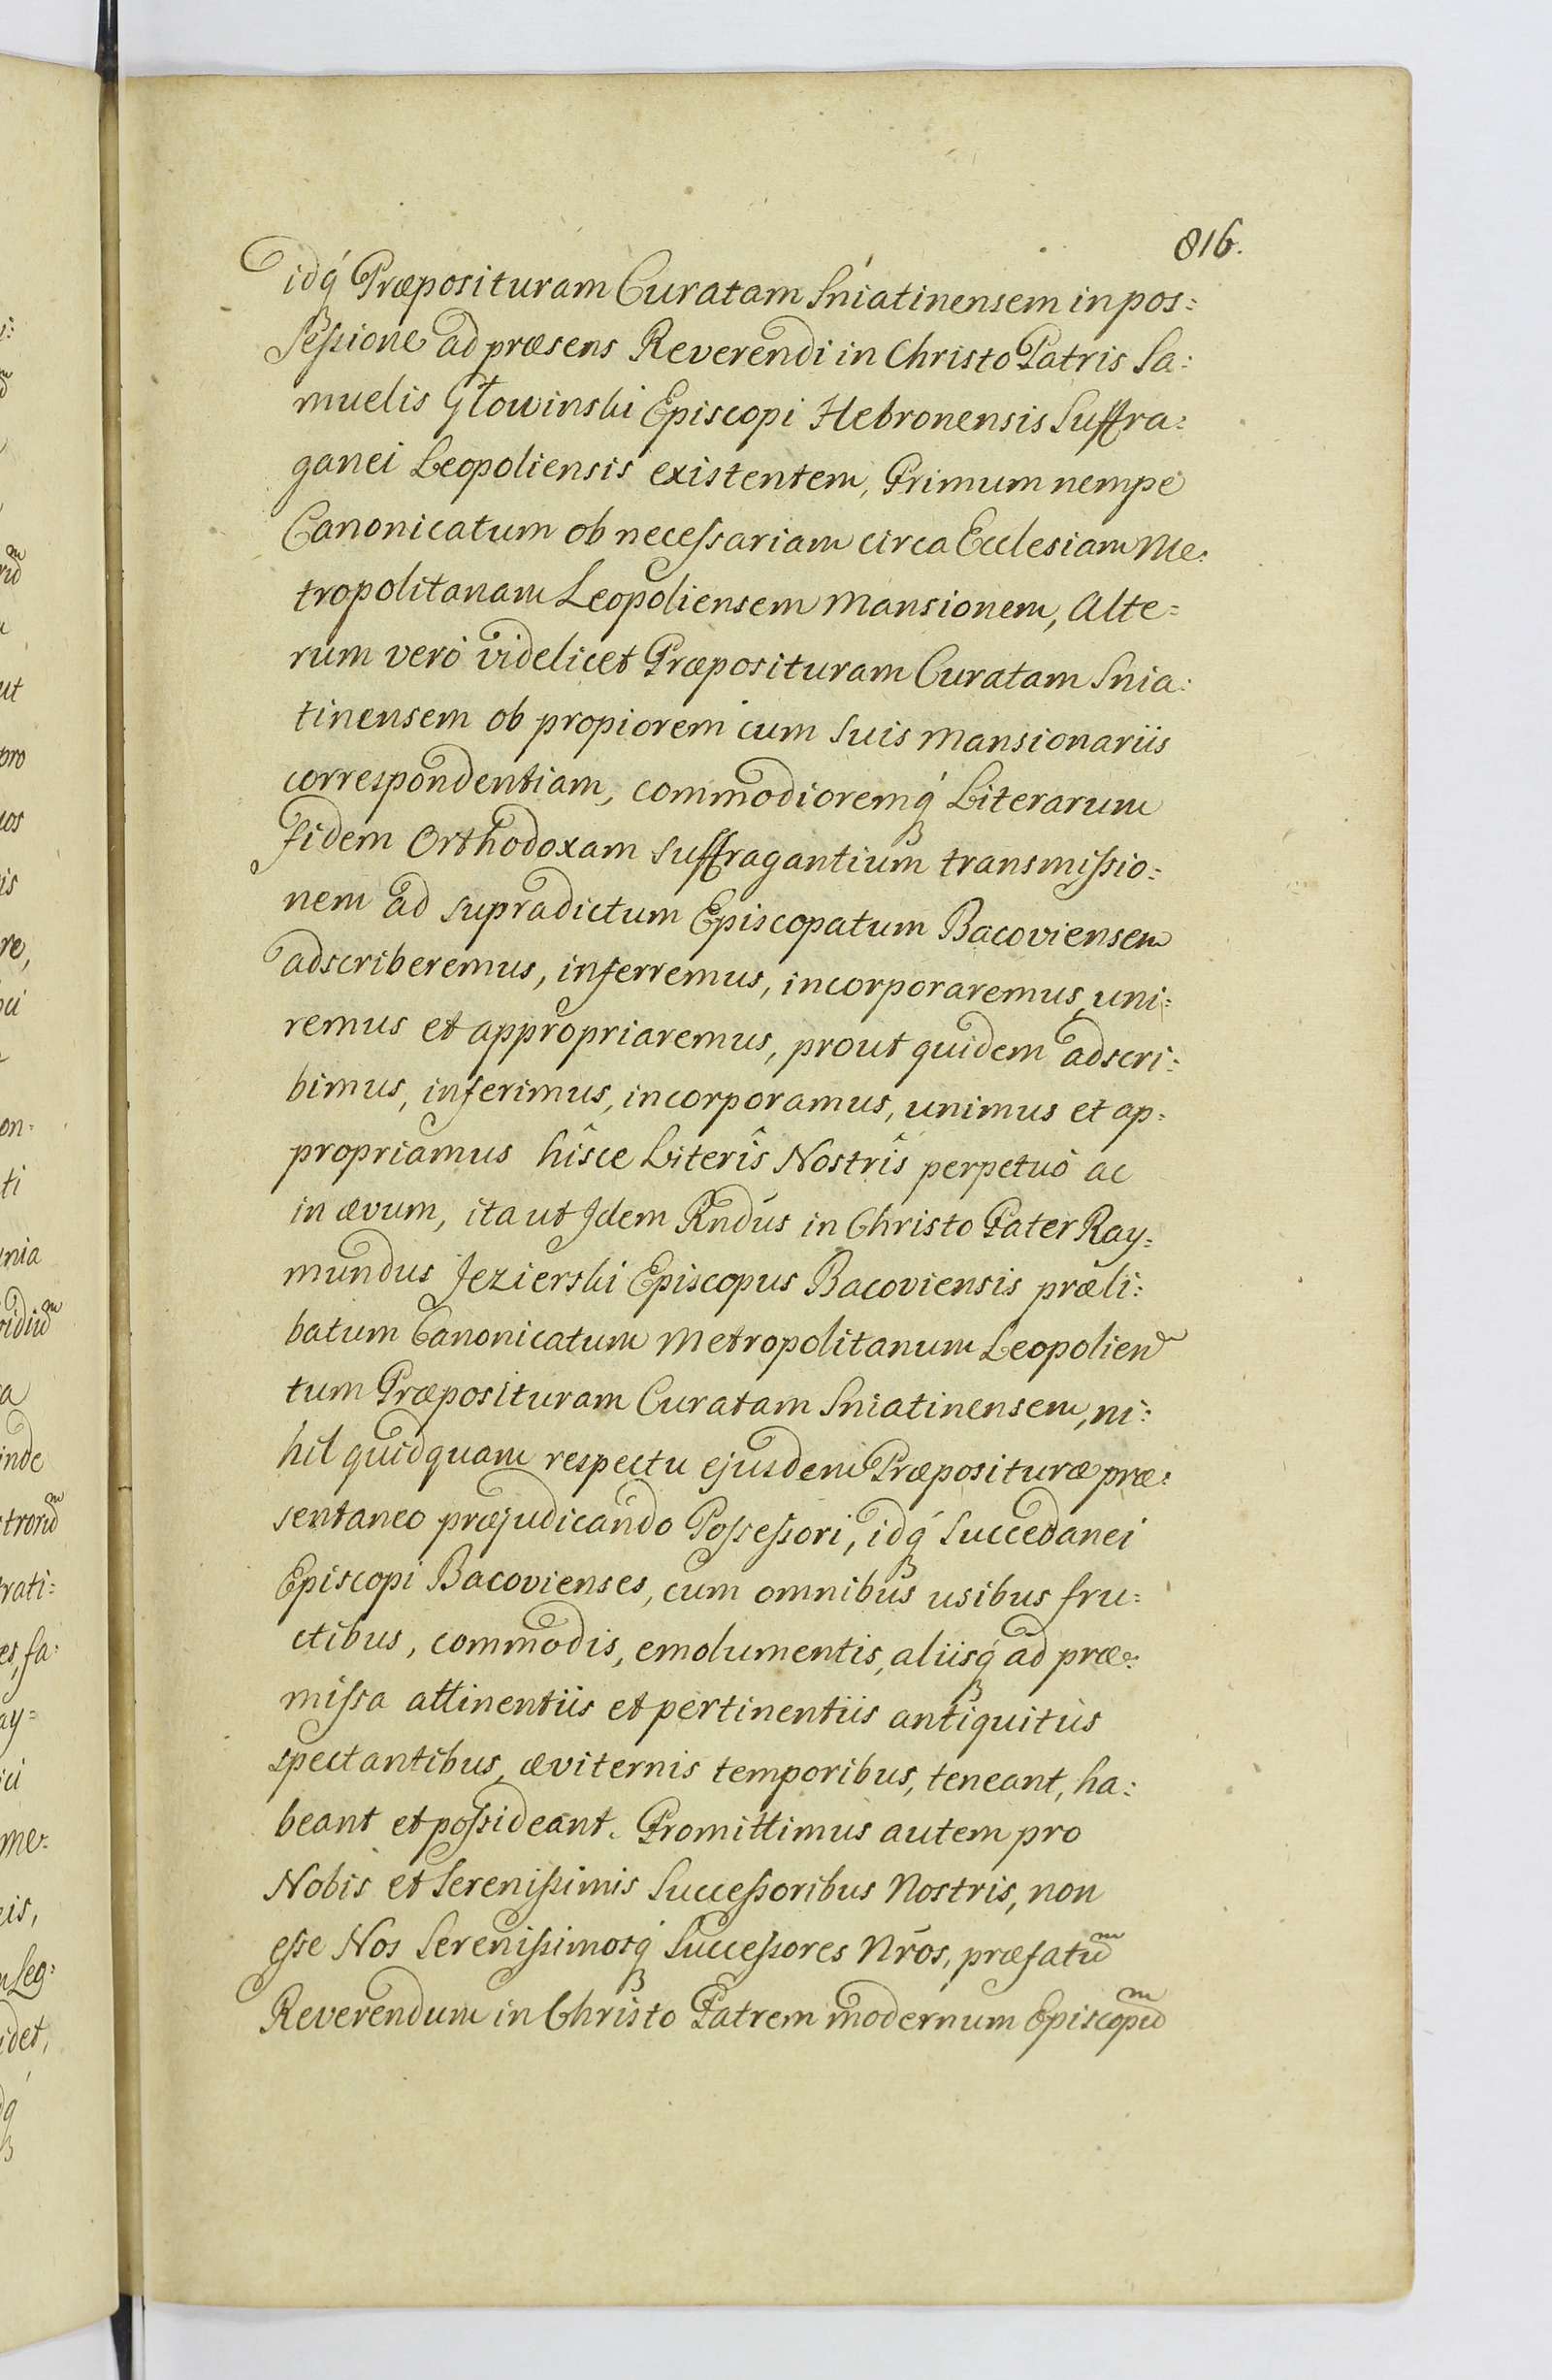 816.
idq́ Præposituram Curatam Sńiatinensem in pos:
seſsione ad præsens Reverendi in Christo Patris Sa:
muelis Głowinski Episcopi Hebronensis Suffra:
ganei Leopoliensis existentem, Primum nempe
Canonicatum ob neceſsariam circa Ecclesiam Me:
tropolitanam Leopoliensem Mansionem, Alte=
rum verò videlicet Præposituram Curatam Snia:
tinensem ob propiorem cum suis Mansionariis
correspondentiam, commodioremq́ Literarum
fidem Orthodoxam suffragantium transmiſsio:
nem ad supradictum Episcopatum Bacoviensem
adscriberemus, inferremus, incorporaremus, uni:
remus et appropriaremus, prout quidem adscri:
bimus, inferimus, incorporamus, unimus et ap:
propriamus hîsce Literîs Nostrîs perpetuò ac
in ævum, ita ut Idem Rndūs in Christo Pater Ray:
mundus Jezierski Episcopus Bacoviensis præli:
batum Canonicatum Metropolitanum Leopolien
tum Præposituram Curatam Sniatinensem, ni:
hil quidquam respectu ejusdem Præposituræ præ:
sentaneo præjudicando Poſseſsori, idq́ Succedanei
Episcopi Bacovienses, cum omnibus usibus fru=
ctibus, commodis, emolumentis, aliisq́ ad præ:
miſsa attinentiis et pertinentiis antiquitùs
spectantibus, æviternis temporibus, teneant, ha:
beant et poſsideant. Promittimus autem pro
Nobis et Sereniſsimis Succeſsoribus Nostris, non
eſse Nos Sereniſsimosq́ Succeſsores Nrōs, præfatuᵐ
Reverendum in Christo Patrem modernum Episcopuᵐ